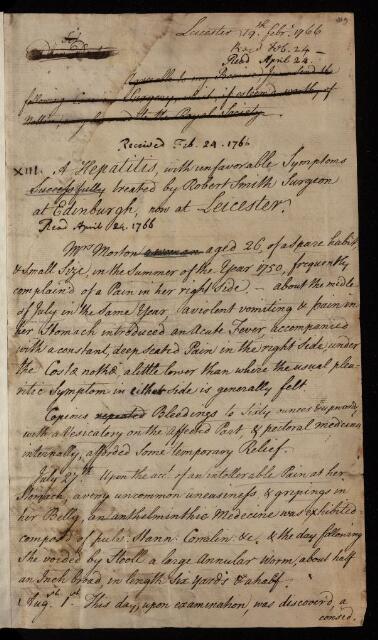 Leicester 19th. febr. 1766
Recd Feb. 24 —
Read April 24.
Agreeable to my Promise I send the
following Surgery, which if esteem'd worthy of
Notice, the Royal Society.
Received Feb. 24. 1766
XIII. A Hepatitis, with unfavorable Symptoms
Successfully treated by Robert Smith Surgeon
at Edinburgh, now at Leicester.
Read April 24. 1766
Mrs Morton a woman aged 26, of a spare habit,
& small Size, in the Summer of the Year 1750, frequently
complain'd of a Pain in her right Side — about the midle
of July in the Same Year, a violent vomiting & pain in
her Stomach introduced an Acute Fever accompanied
with a constant, deep seated Pain in the right side, under
the Costæ nothæ a little lower than where the usual pleu-
ritic Symptom in either side is generally felt.
Copious repeated Bleedings to Sixty ounces & upwards,
with a Vesicatory on the Affected Part, & pectoral medecines
internally, afforded Some temporary Relief.
July 27th. Upon the acct. of an intollerable Pain at her
Stomach, a very uncommon uneasiness & gripings in
her Belly, an anthelminthic Medecine was exhibited
compos'd of pulv. Stann: Corralin: &c, & the day following
She voided by Stool a large Annular Worm, about half
an Inch broad, in length Six Yards & a half.
Augst. 1st. This day, upon examination, was discover'd, a
consid.